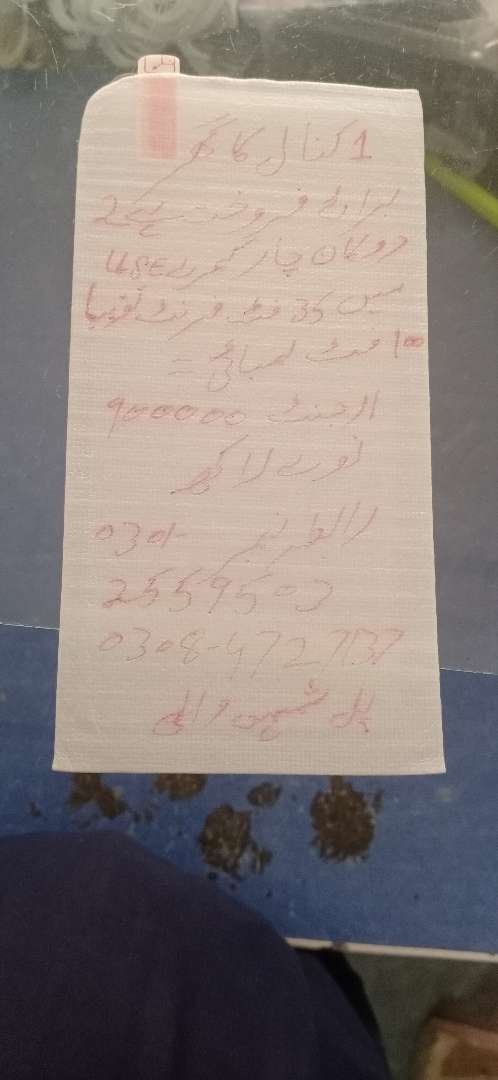 1 کنال کا گھر
برائے فروخت ہے 2
دوکان چار کمرے USE
میں 35 فٹ فرنٹ تقریبا
100 فٹ لمبائی =
ارجنٹ 900000
نوے لاکھ
رابطہ نمبر 0301-
2559503
0308-4727137
پل والی